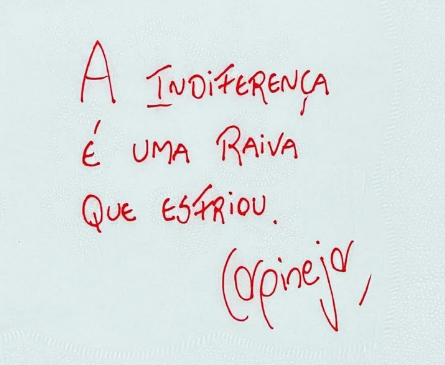 A INDIFERENÇA
É UMA RAIVA
QUE ESFRIOU.
Carpinejar